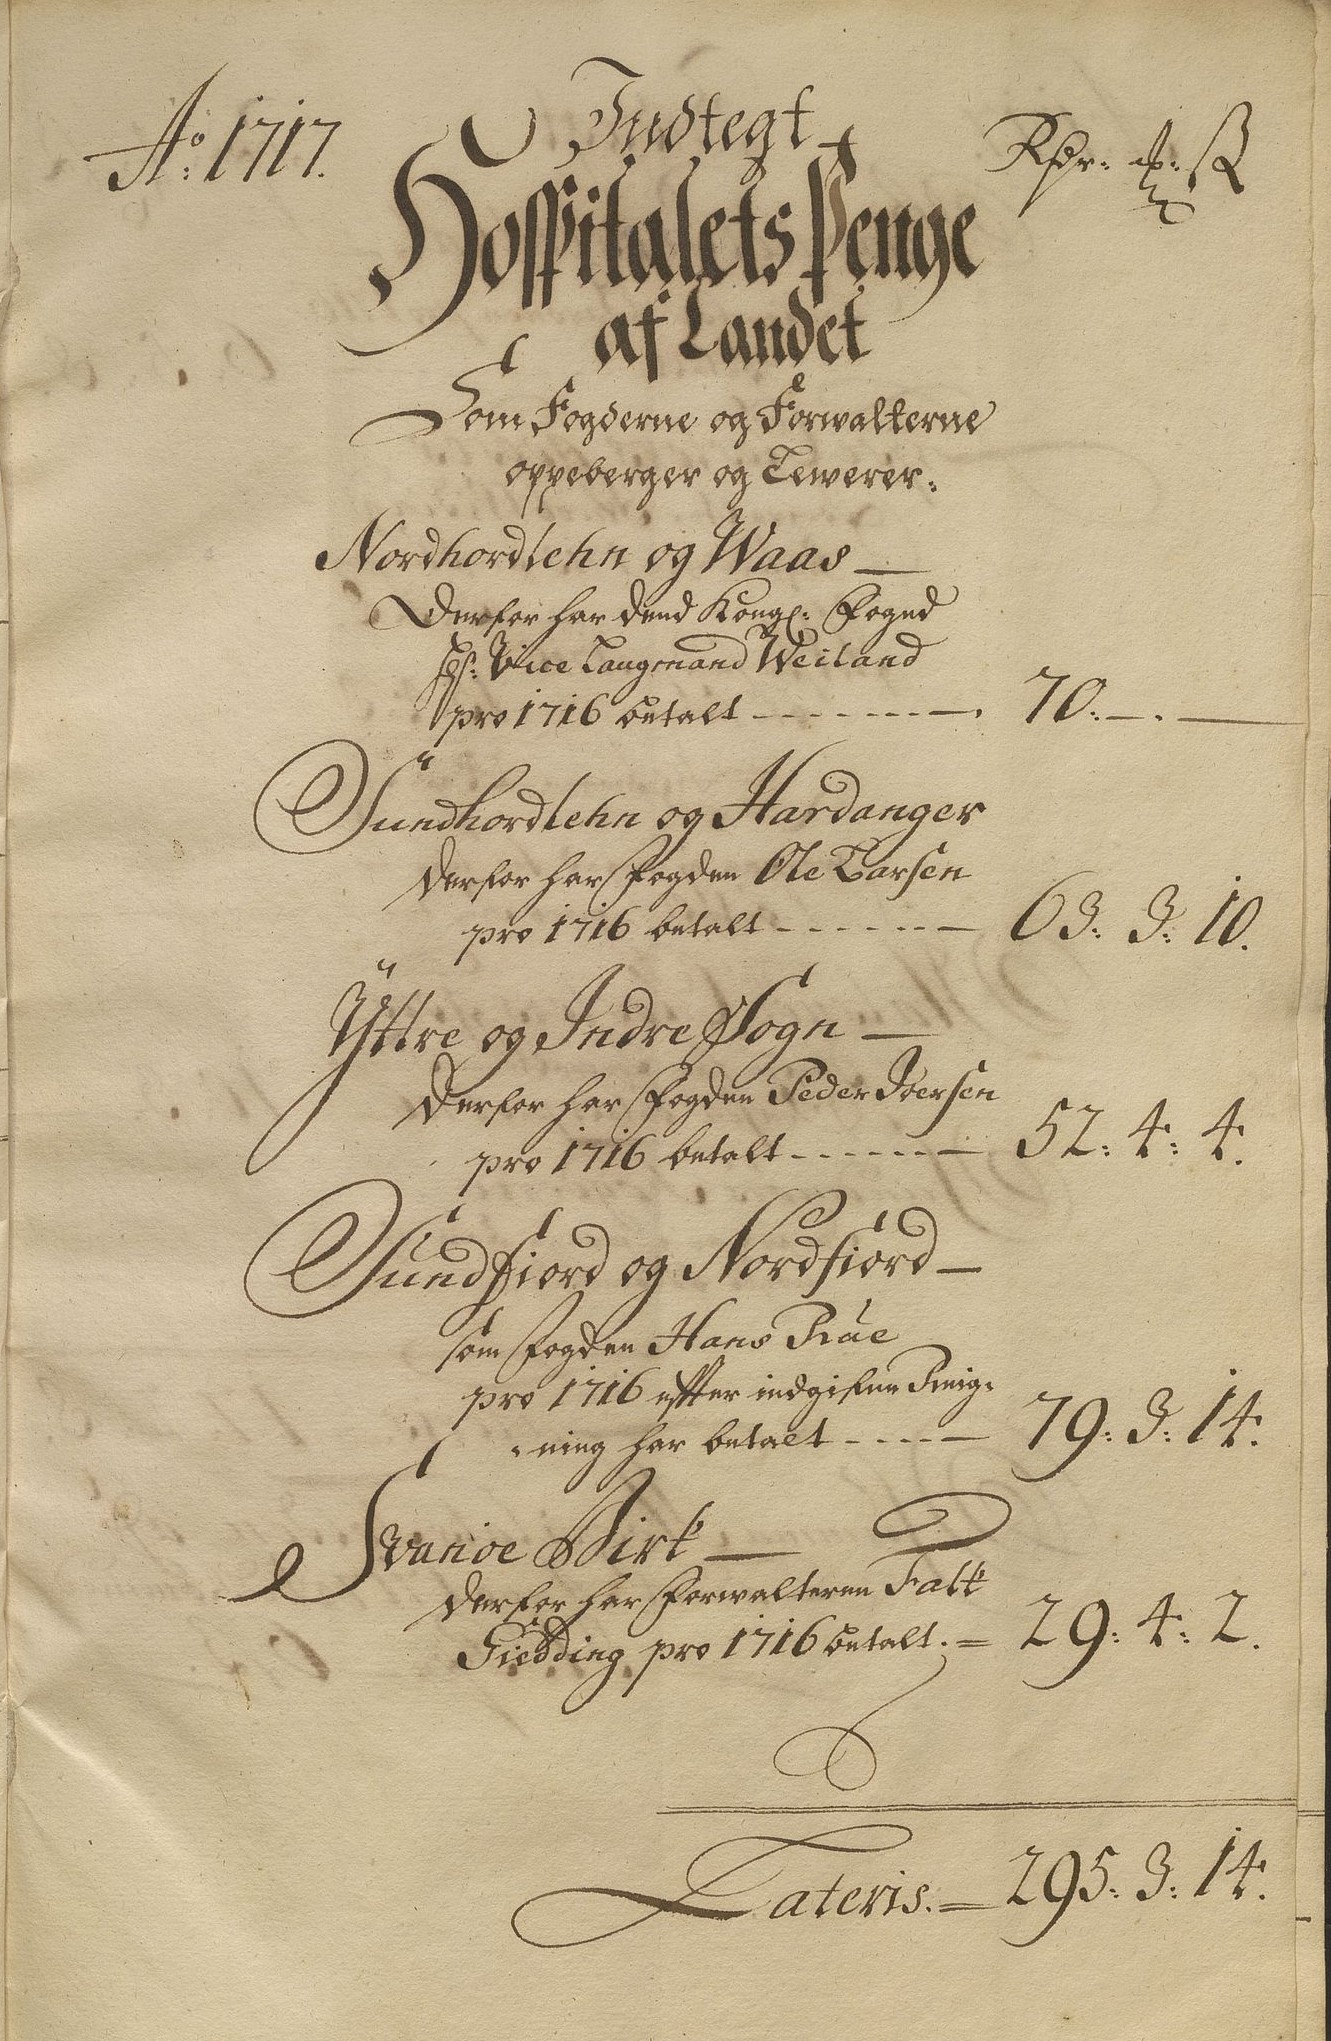 Ao: 1717.
Indtegt
Rdr: mk: ß
Hospitalets Penge
af Landet
Som Fogderne og Forwalterne
oppeberger og Lewerer:
Nordhordlehn og Waas —
Derfor har dend Kongl: Foged
Hr: Vice Laugmand Weiland
pro 1716 betalt - - - - - - - —. 70: —. —
Sundhordlehn og Hardanger
Derfor har Fogden Ole Larsen
pro 1716 betalt - - - - - - — 63: 3: 10.
Yttre og Indre Sogn —
Derfor har Fogden Peder Iversen
pro 1716 betalt - - - - - - — 52: 4: 4.
Sundfiord og Nordfiord —
som Fogden Hans Rüe
pro 1716 effter indgifen Reig=
=ning har betalt - - - - — 79: 3: 14.
Svanøe Birk —
Derfor har Forwalteren Falk
Giedding pro 1716 betalt. = 29: 4: 2.
Lateris. = 295: 3: 14.